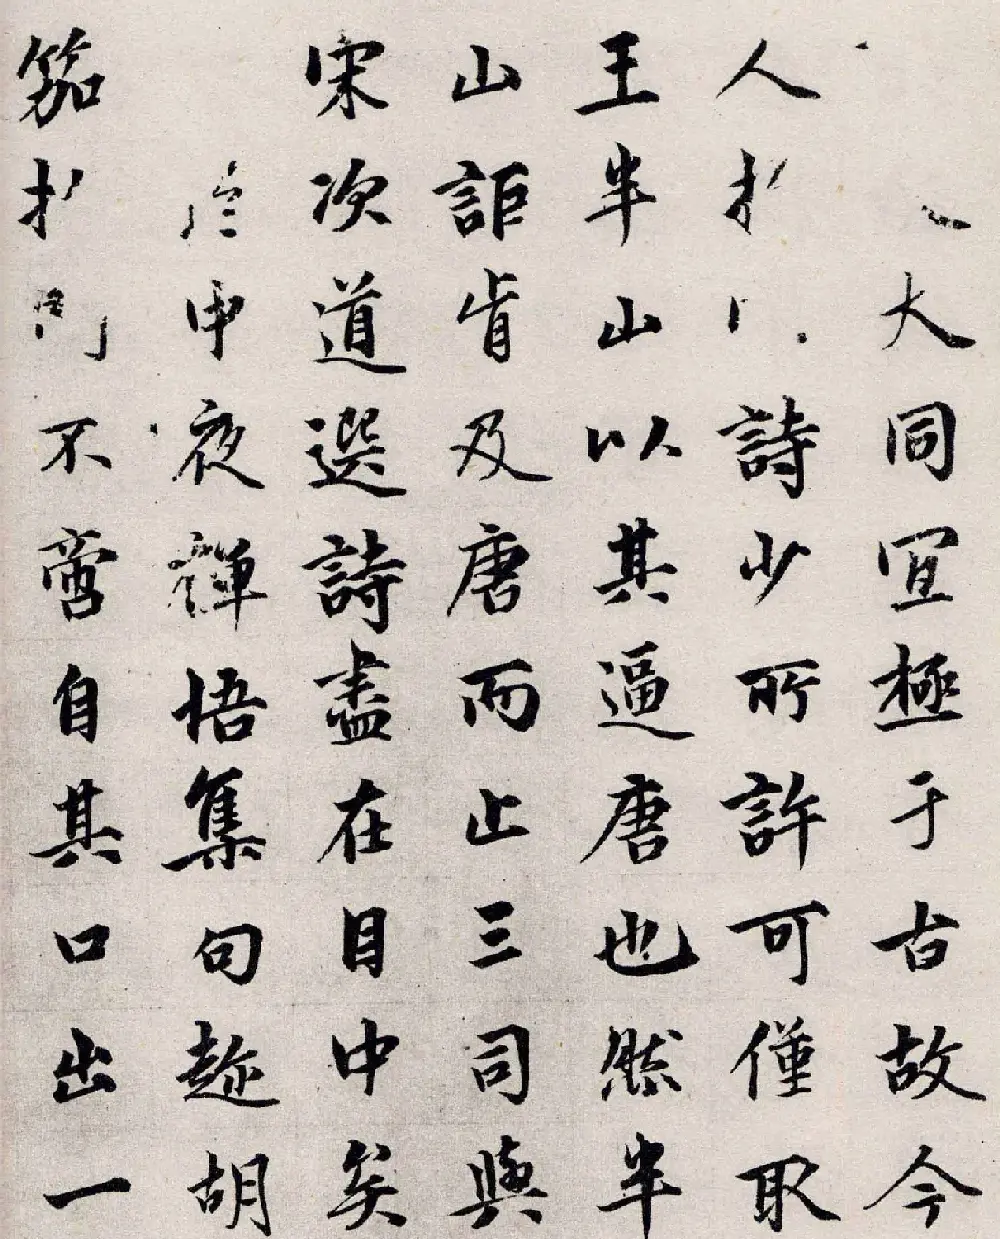 大同宜極于古故今
人於詩少所許可僅取
王半山以其逼唐也然半
山詎肯及唐而止三司與
宋次道選詩盡在目中矣
中夜禪悟集句趂胡
笳於門不啻自其口出一